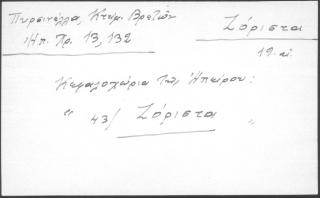 Πυρσινέλλα, Κτημ. Βρετῶν
Ἠπ. Χρ. 13, 132
Ζόριστα
19. αἰ.
Κεφαλοχώρια τῆς Ἠπείρου:
" 43/ Ζόριστα "